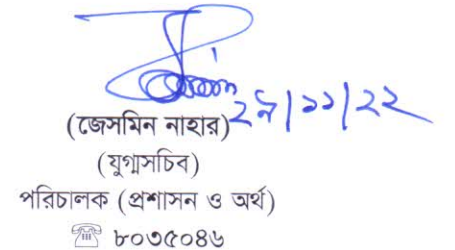 ২৯/১১/২২
(জেসমিন নাহার)
(যুগ্মসচিব)
পরিচালক (প্রশাসন ও অর্থ)
☏ ৮০৩৫০৪৬